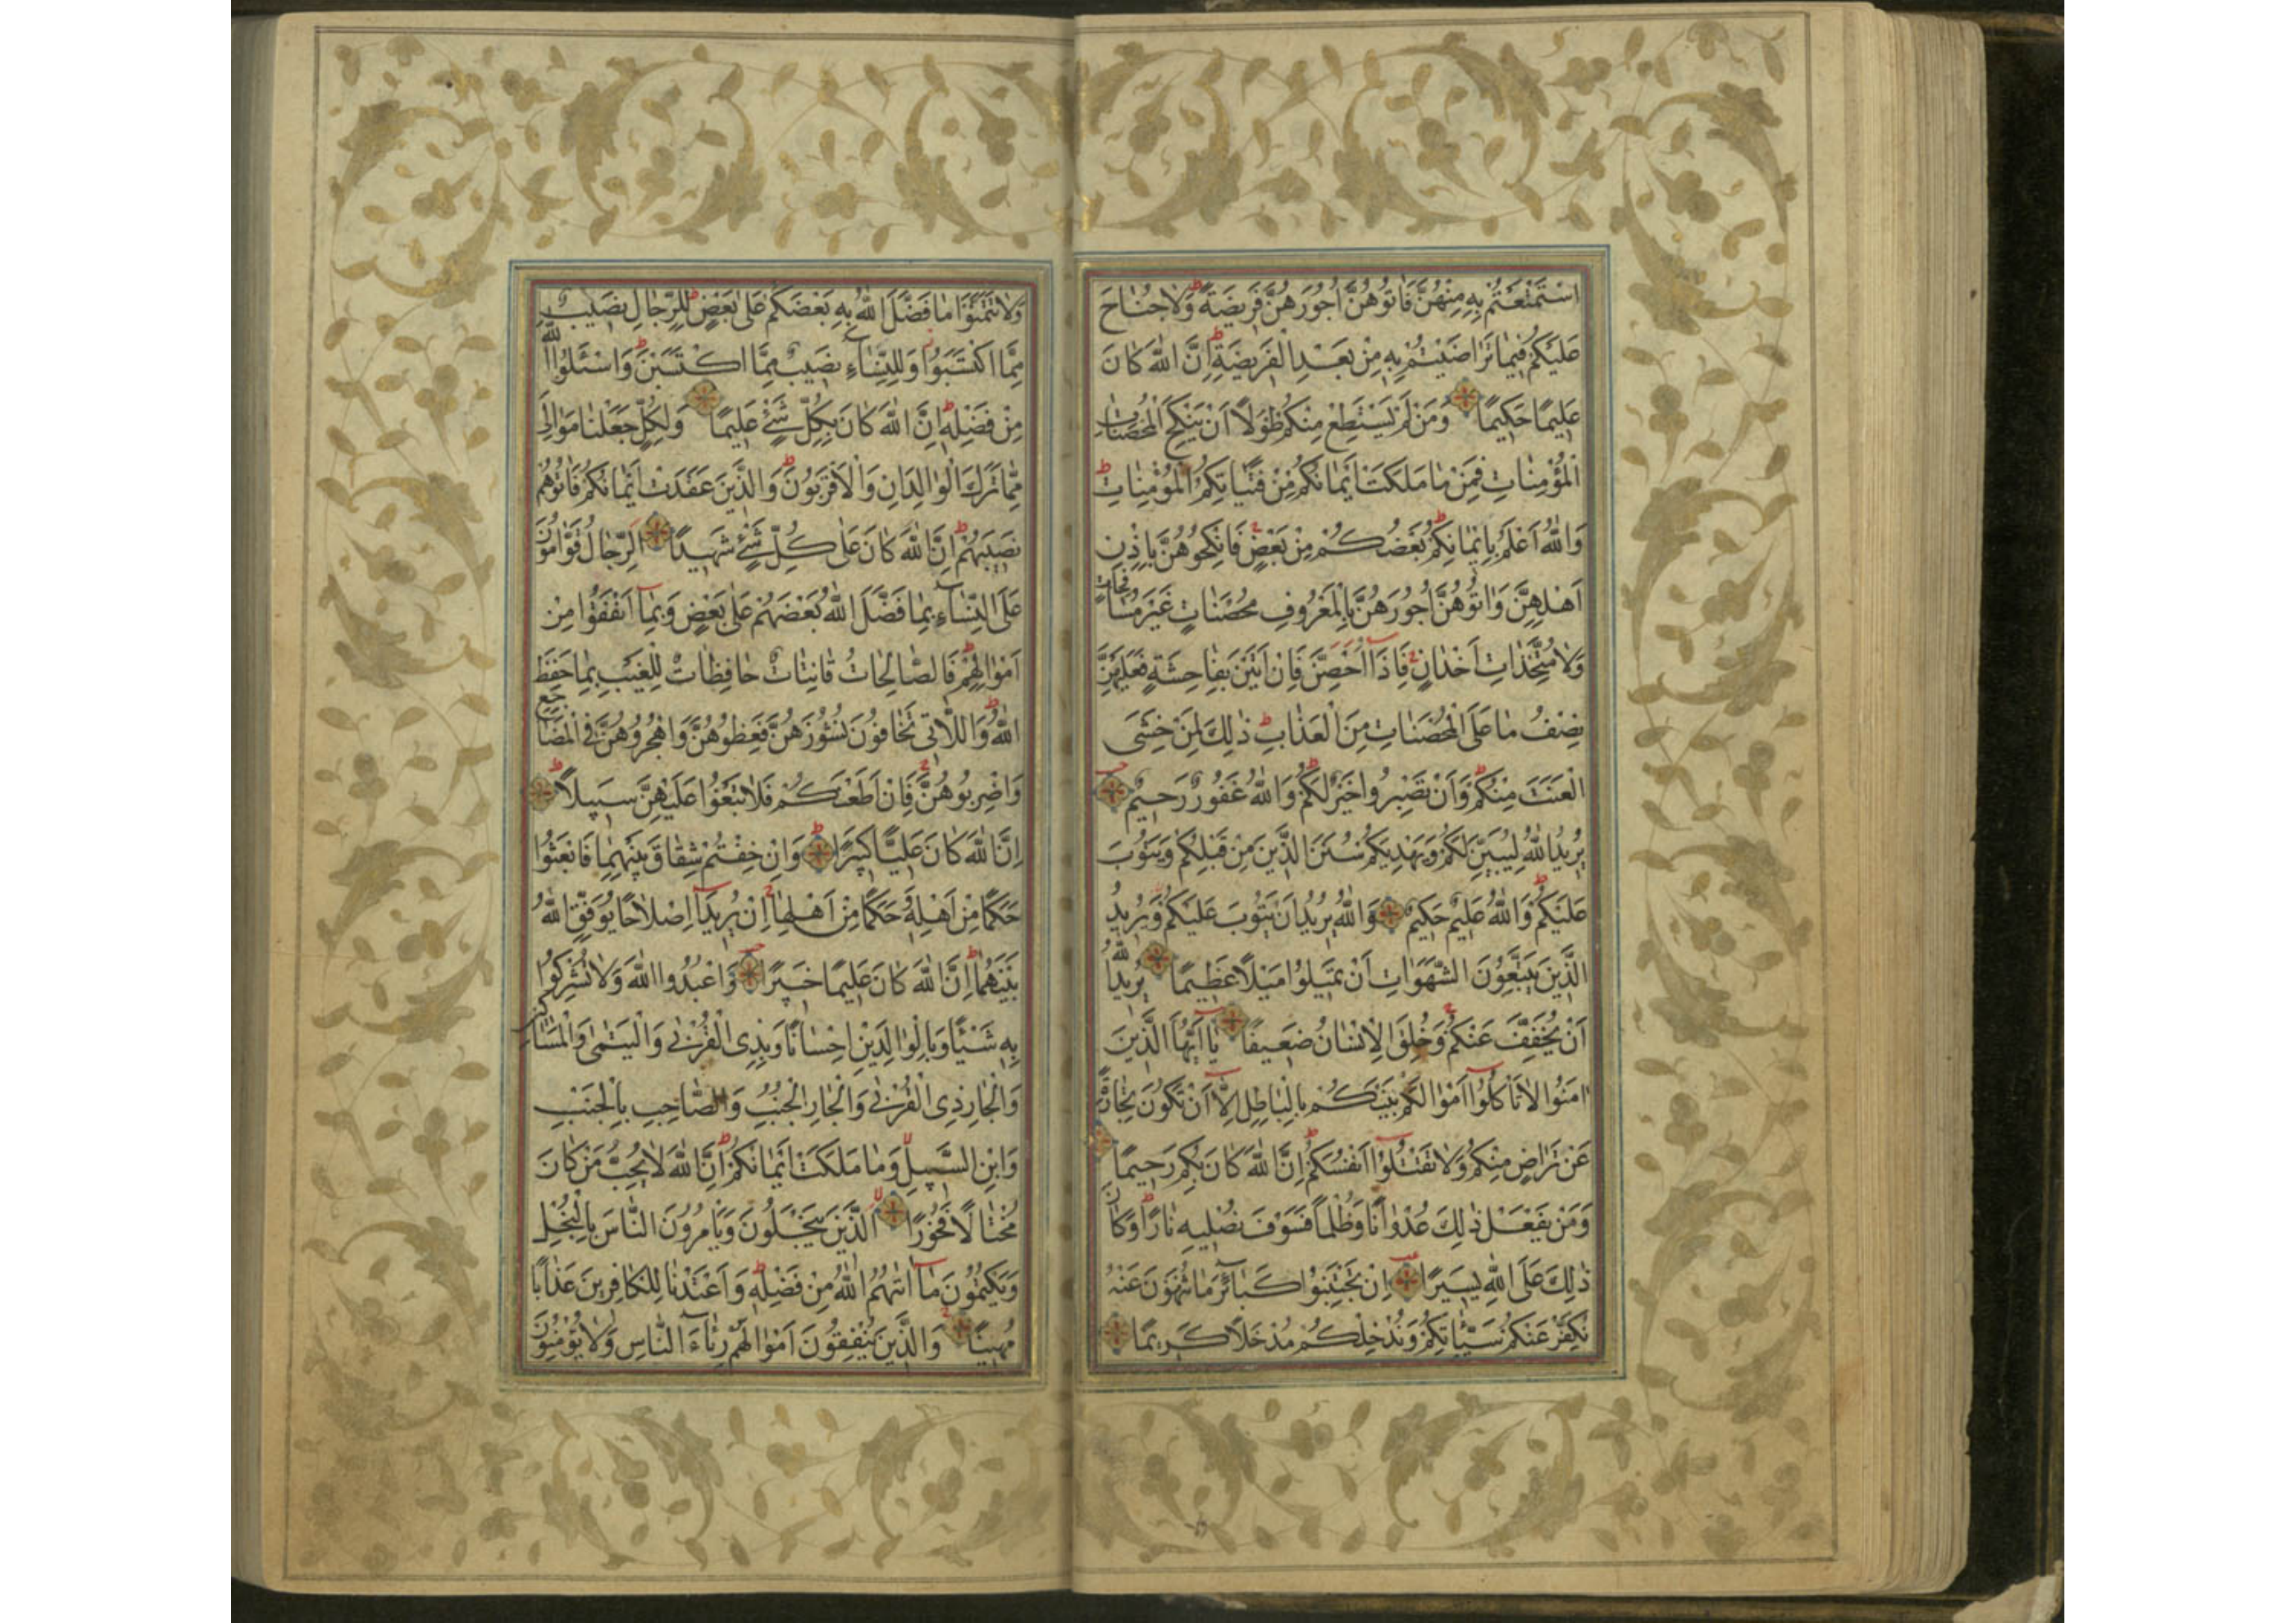 اسْتَمْتَعْتُمْ بِهِ مِنْهُنَّ فَاٰتُوهُنَّ اُجُورَهُنَّ فَرِيضَةً ط وَلَا جُنَاحَ
عَلَيْكُمْ فِيمَا تَرَاضَيْتُمْ بِهِ مِنْ بَعْدِ الْفَرِيضَةِ ط اِنَّ اللّٰهَ كَانَ
عَلِيمًا حَكِيمًا وَمَنْ لَمْ يَسْتَطِعْ مِنْكُمْ طَوْلًا اَنْ يَنْكِحَ الْمُحْصَنَاتِ
الْمُؤْمِنَاتِ فَمِنْ مَا مَلَكَتْ اَيْمَانُكُمْ مِنْ فَتَيَاتِكُمُ الْمُؤْمِنَاتِ ط
وَاللّٰهُ اَعْلَمُ بِاِيمَانِكُمْ ط بَعْضُكُمْ مِنْ بَعْضٍ ج فَانْكِحُوهُنَّ بِاِذْنِ
اَهْلِهِنَّ وَاٰتُوهُنَّ اُجُورَهُنَّ بِالْمَعْرُوفِ مُحْصَنَاتٍ غَيْرَ مُسَافِحَاتٍ
وَلَا مُتَّخِذَاتِ اَخْدَانٍ ج فَاِذَا اُحْصِنَّ فَاِنْ اَتَيْنَ بِفَاحِشَةٍ فَعَلَيْهِنَّ
نِصْفُ مَا عَلَى الْمُحْصَنَاتِ مِنَ الْعَذَابِ ط ذٰلِكَ لِمَنْ خَشِيَ
الْعَنَتَ مِنْكُمْ ط وَاَنْ تَصْبِرُوا خَيْرٌ لَكُمْ ط وَاللّٰهُ غَفُورٌ رَحِيمٌ
يُرِيدُ اللّٰهُ لِيُبَيِّنَ لَكُمْ وَيَهْدِيَكُمْ سُنَنَ الَّذِينَ مِنْ قَبْلِكُمْ وَيَتُوبَ
عَلَيْكُمْ ط وَاللّٰهُ عَلِيمٌ حَكِيمٌ وَاللّٰهُ يُرِيدُ اَنْ يَتُوبَ عَلَيْكُمْ وَيُرِيدُ
الَّذِينَ يَتَّبِعُونَ الشَّهَوَاتِ اَنْ تَمِيلُوا مَيْلًا عَظِيمًا يُرِيدُ اللّٰهُ
اَنْ يُخَفِّفَ عَنْكُمْ ج وَخُلِقَ الْاِنْسَانُ ضَعِيفًا يَا اَيُّهَا الَّذِينَ
اٰمَنُوا لَا تَاْكُلُوا اَمْوَالَكُمْ بَيْنَكُمْ بِالْبَاطِلِ اِلَّا اَنْ تَكُونَ تِجَارَةً
عَنْ تَرَاضٍ مِنْكُمْ وَلَا تَقْتُلُوا اَنْفُسَكُمْ ط اِنَّ اللّٰهَ كَانَ بِكُمْ رَحِيمًا
وَمَنْ يَفْعَلْ ذٰلِكَ عُدْوَانًا وَظُلْمًا فَسَوْفَ نُصْلِيهِ نَارًا ط وَكَانَ
ذٰلِكَ عَلَى اللّٰهِ يَسِيرًا اِنْ تَجْتَنِبُوا كَبَائِرَ مَا تُنْهَوْنَ عَنْهُ
نُكَفِّرْ عَنْكُمْ سَيِّئَاتِكُمْ وَنُدْخِلْكُمْ مُدْخَلًا كَرِيمًا
وَلَا تَتَمَنَّوْا مَا فَضَّلَ اللّٰهُ بِهِ بَعْضَكُمْ عَلٰى بَعْضٍ ط لِلرِّجَالِ نَصِيبٌ
مِمَّا اكْتَسَبُوا وَلِلنِّسَاءِ نَصِيبٌ مِمَّا اكْتَسَبْنَ ط وَاسْئَلُوا اللّٰهَ
مِنْ فَضْلِهِ ط اِنَّ اللّٰهَ كَانَ بِكُلِّ شَيْءٍ عَلِيمًا وَلِكُلٍّ جَعَلْنَا مَوَالِيَ
مِمَّا تَرَكَ الْوَالِدَانِ وَالْاَقْرَبُونَ ط وَالَّذِينَ عَقَدَتْ اَيْمَانُكُمْ فَاٰتُوهُمْ
نَصِيبَهُمْ ط اِنَّ اللّٰهَ كَانَ عَلٰى كُلِّ شَيْءٍ شَهِيدًا اَلرِّجَالُ قَوَّامُونَ
عَلَى النِّسَاءِ بِمَا فَضَّلَ اللّٰهُ بَعْضَهُمْ عَلٰى بَعْضٍ وَبِمَا اَنْفَقُوا مِنْ
اَمْوَالِهِمْ ط فَالصَّالِحَاتُ قَانِتَاتٌ حَافِظَاتٌ لِلْغَيْبِ بِمَا حَفِظَ
اللّٰهُ ط وَاللَّاتِي تَخَافُونَ نُشُوزَهُنَّ فَعِظُوهُنَّ وَاهْجُرُوهُنَّ فِي الْمَضَاجِعِ
وَاضْرِبُوهُنَّ ج فَاِنْ اَطَعْنَكُمْ فَلَا تَبْغُوا عَلَيْهِنَّ سَبِيلًا ط
اِنَّ اللّٰهَ كَانَ عَلِيًّا كَبِيرًا ط وَاِنْ خِفْتُمْ شِقَاقَ بَيْنِهِمَا فَابْعَثُوا
حَكَمًا مِنْ اَهْلِهِ وَحَكَمًا مِنْ اَهْلِهَا ج اِنْ يُرِيدَا اِصْلَاحًا يُوَفِّقِ اللّٰهُ
بَيْنَهُمَا ط اِنَّ اللّٰهَ كَانَ عَلِيمًا خَبِيرًا وَاعْبُدُوا اللّٰهَ وَلَا تُشْرِكُوا
بِهِ شَيْئًا وَبِالْوَالِدَيْنِ اِحْسَانًا وَبِذِي الْقُرْبٰى وَالْيَتٰمٰى وَالْمَسَاكِينِ
وَالْجَارِ ذِي الْقُرْبٰى وَالْجَارِ الْجُنُبِ وَالصَّاحِبِ بِالْجَنْبِ
وَابْنِ السَّبِيلِ لا وَمَا مَلَكَتْ اَيْمَانُكُمْ ط اِنَّ اللّٰهَ لَا يُحِبُّ مَنْ كَانَ
مُخْتَالًا فَخُورًا لا الَّذِينَ يَبْخَلُونَ وَيَاْمُرُونَ النَّاسَ بِالْبُخْلِ
وَيَكْتُمُونَ مَا اٰتٰهُمُ اللّٰهُ مِنْ فَضْلِهِ ط وَاَعْتَدْنَا لِلْكَافِرِينَ عَذَابًا
مُهِينًا ج وَالَّذِينَ يُنْفِقُونَ اَمْوَالَهُمْ رِئَاءَ النَّاسِ وَلَا يُؤْمِنُونَ